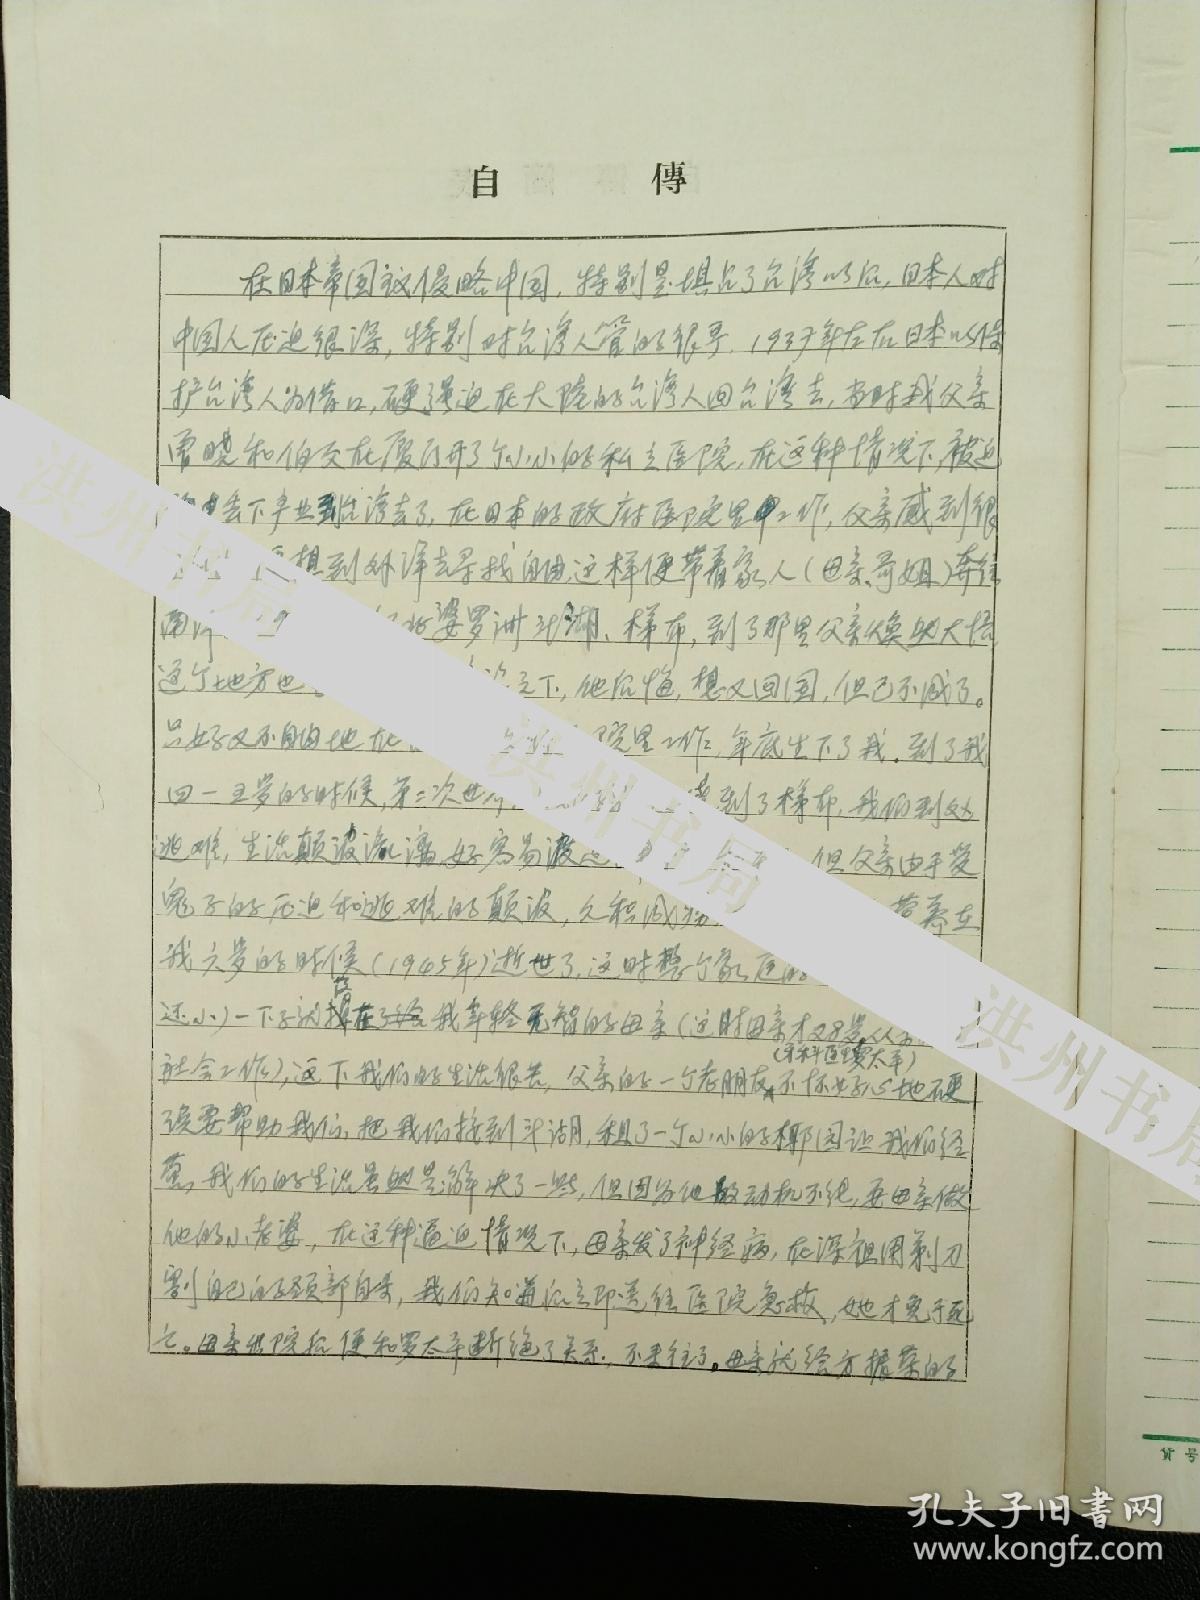 自 傳
在日本帝国主义侵略中国，特别是填占了台湾以后，日本人对
中国人压迫很深，特别对台湾人管的很严，1937年左右日本以保
护台湾人为借口，硬强迫在大陆的台湾人回台湾去，当时我父亲
曾晓和伯父在厦门开了个小小的私立医院，在这种情况下，被迫
丢下产业到台湾去了，在日本的政府医院里工作，父亲感到很
想到外洋去寻找自由，这样便带着家人（母亲、哥、姐）奔往
南洋 婆罗洲斗湖、梯布，到了那里父亲恍然大悟
这个地方也 之下，他后悔，想又回国，但已不成了。
只好又不自由地在 院里工作，年底生下了我。到了我
四—五岁的时候，第二次世界 到了梯布，我们到处
逃难，生活颠波流漓，好容易波 但父亲由于受
鬼子的压迫和逃难的颠波，久积成痨 营养在
我六岁的时候（1945年）逝世了，这时整个家庭的
还小）一下子就落在了给我年轻无智的母亲（这时母亲才28岁，从不
（牙科医罗太平）
社会工作），这下我们的生活很苦，父亲的一个老朋友不怀好心地硬
说要帮助我们，把我们接到斗湖，租了一个小小的椰园让我们经
营，我们的生活虽然是解决了一些，但因为他的动机不纯，要母亲做
他的小老婆，在这种逼迫情况下，母亲发了神经病，在深夜用剃刀
割自己的颈部自杀，我们知道后立即送往医院急救，她才免于死
亡。母亲出院后便和罗太平断绝了关系，不来往了。母亲就给方振华的
货号
洪州书局
洪州书局
洪州书局
孔夫子旧书网
www.kongfz.com